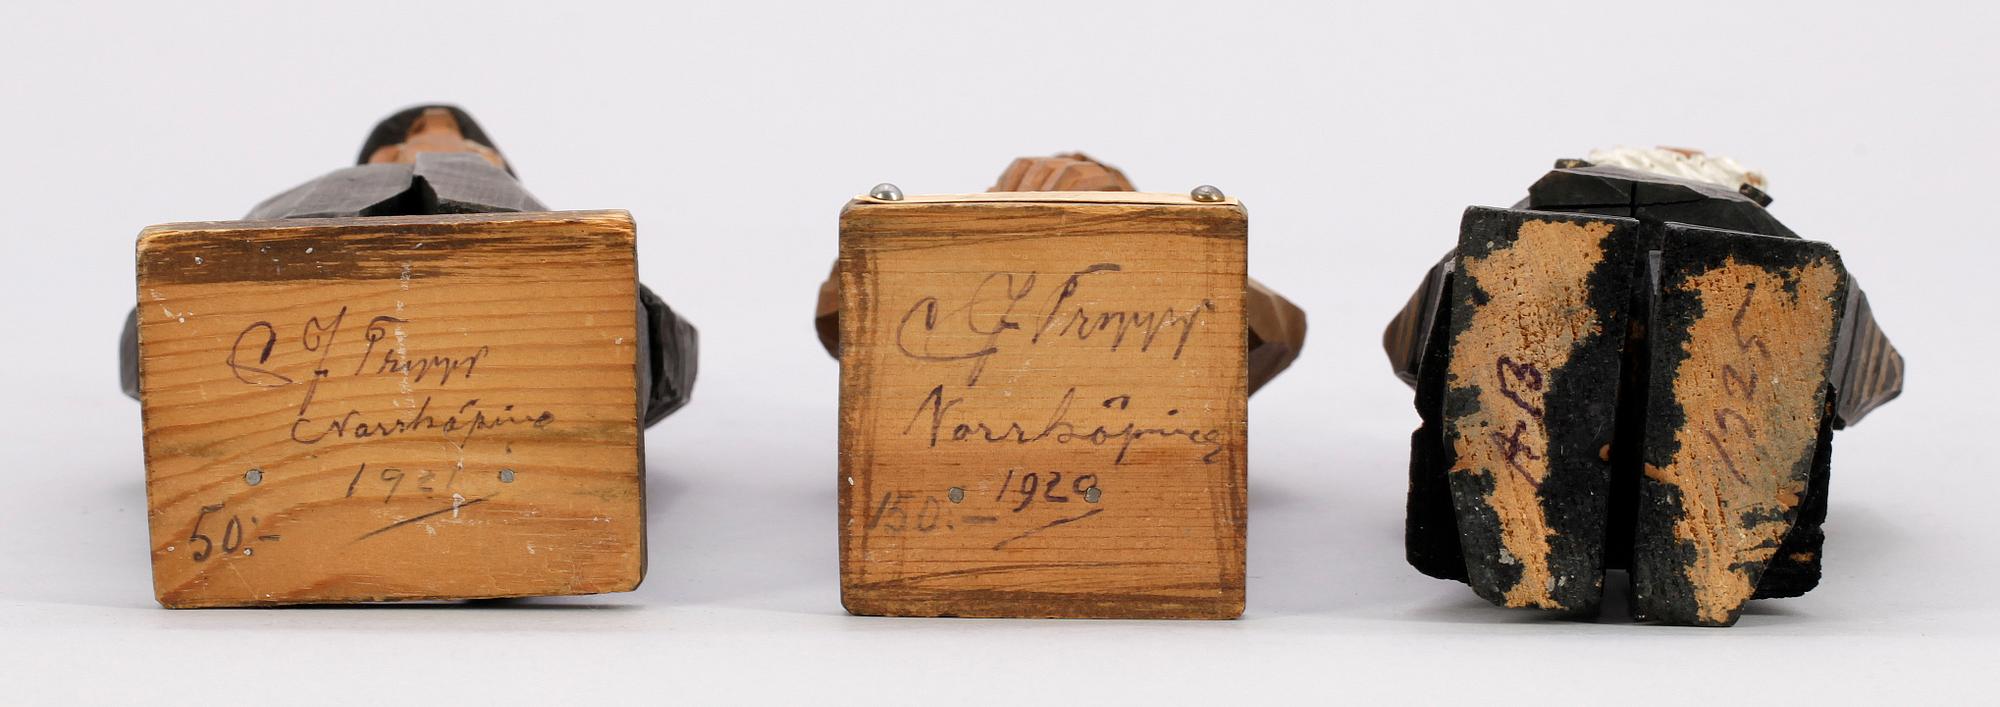 C J Trapp
Norrköping
1921
50:-
C J Trapp
Norrköping
1920
150:-
AB
1925